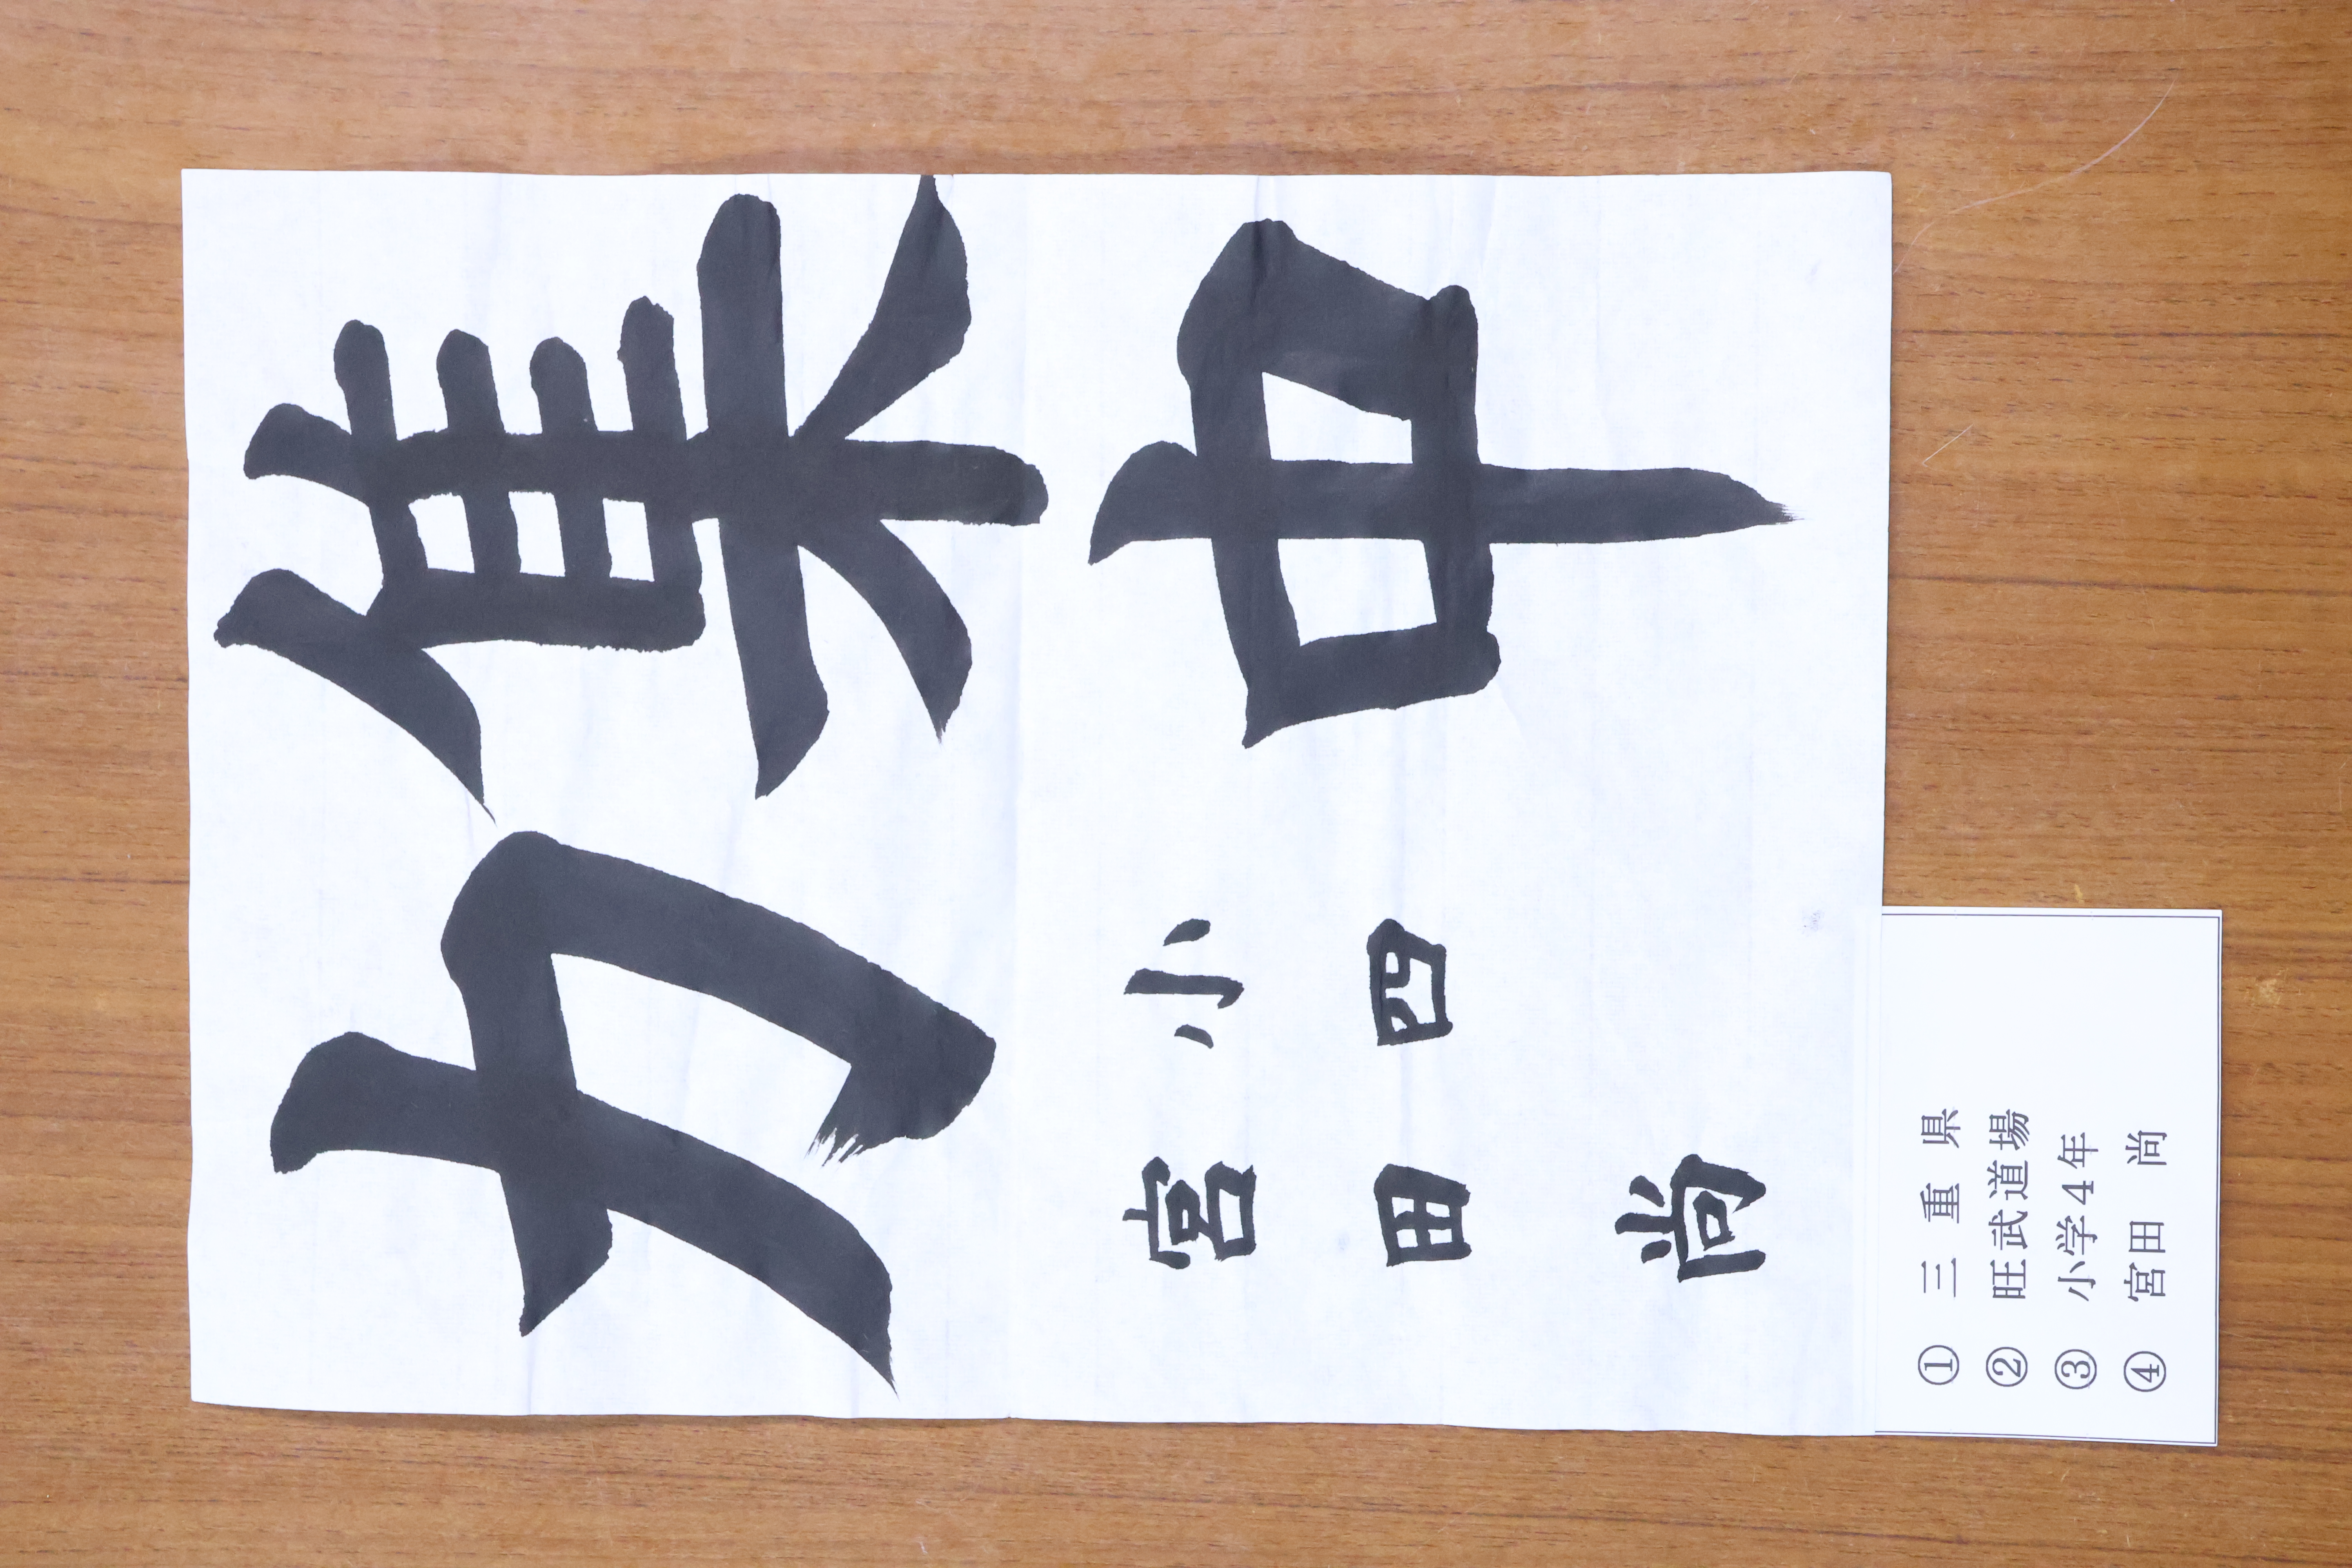 集中
力
小四
宮田尚
① 三重県
② 旺武道場
③ 小学4年
④ 宮田 尚